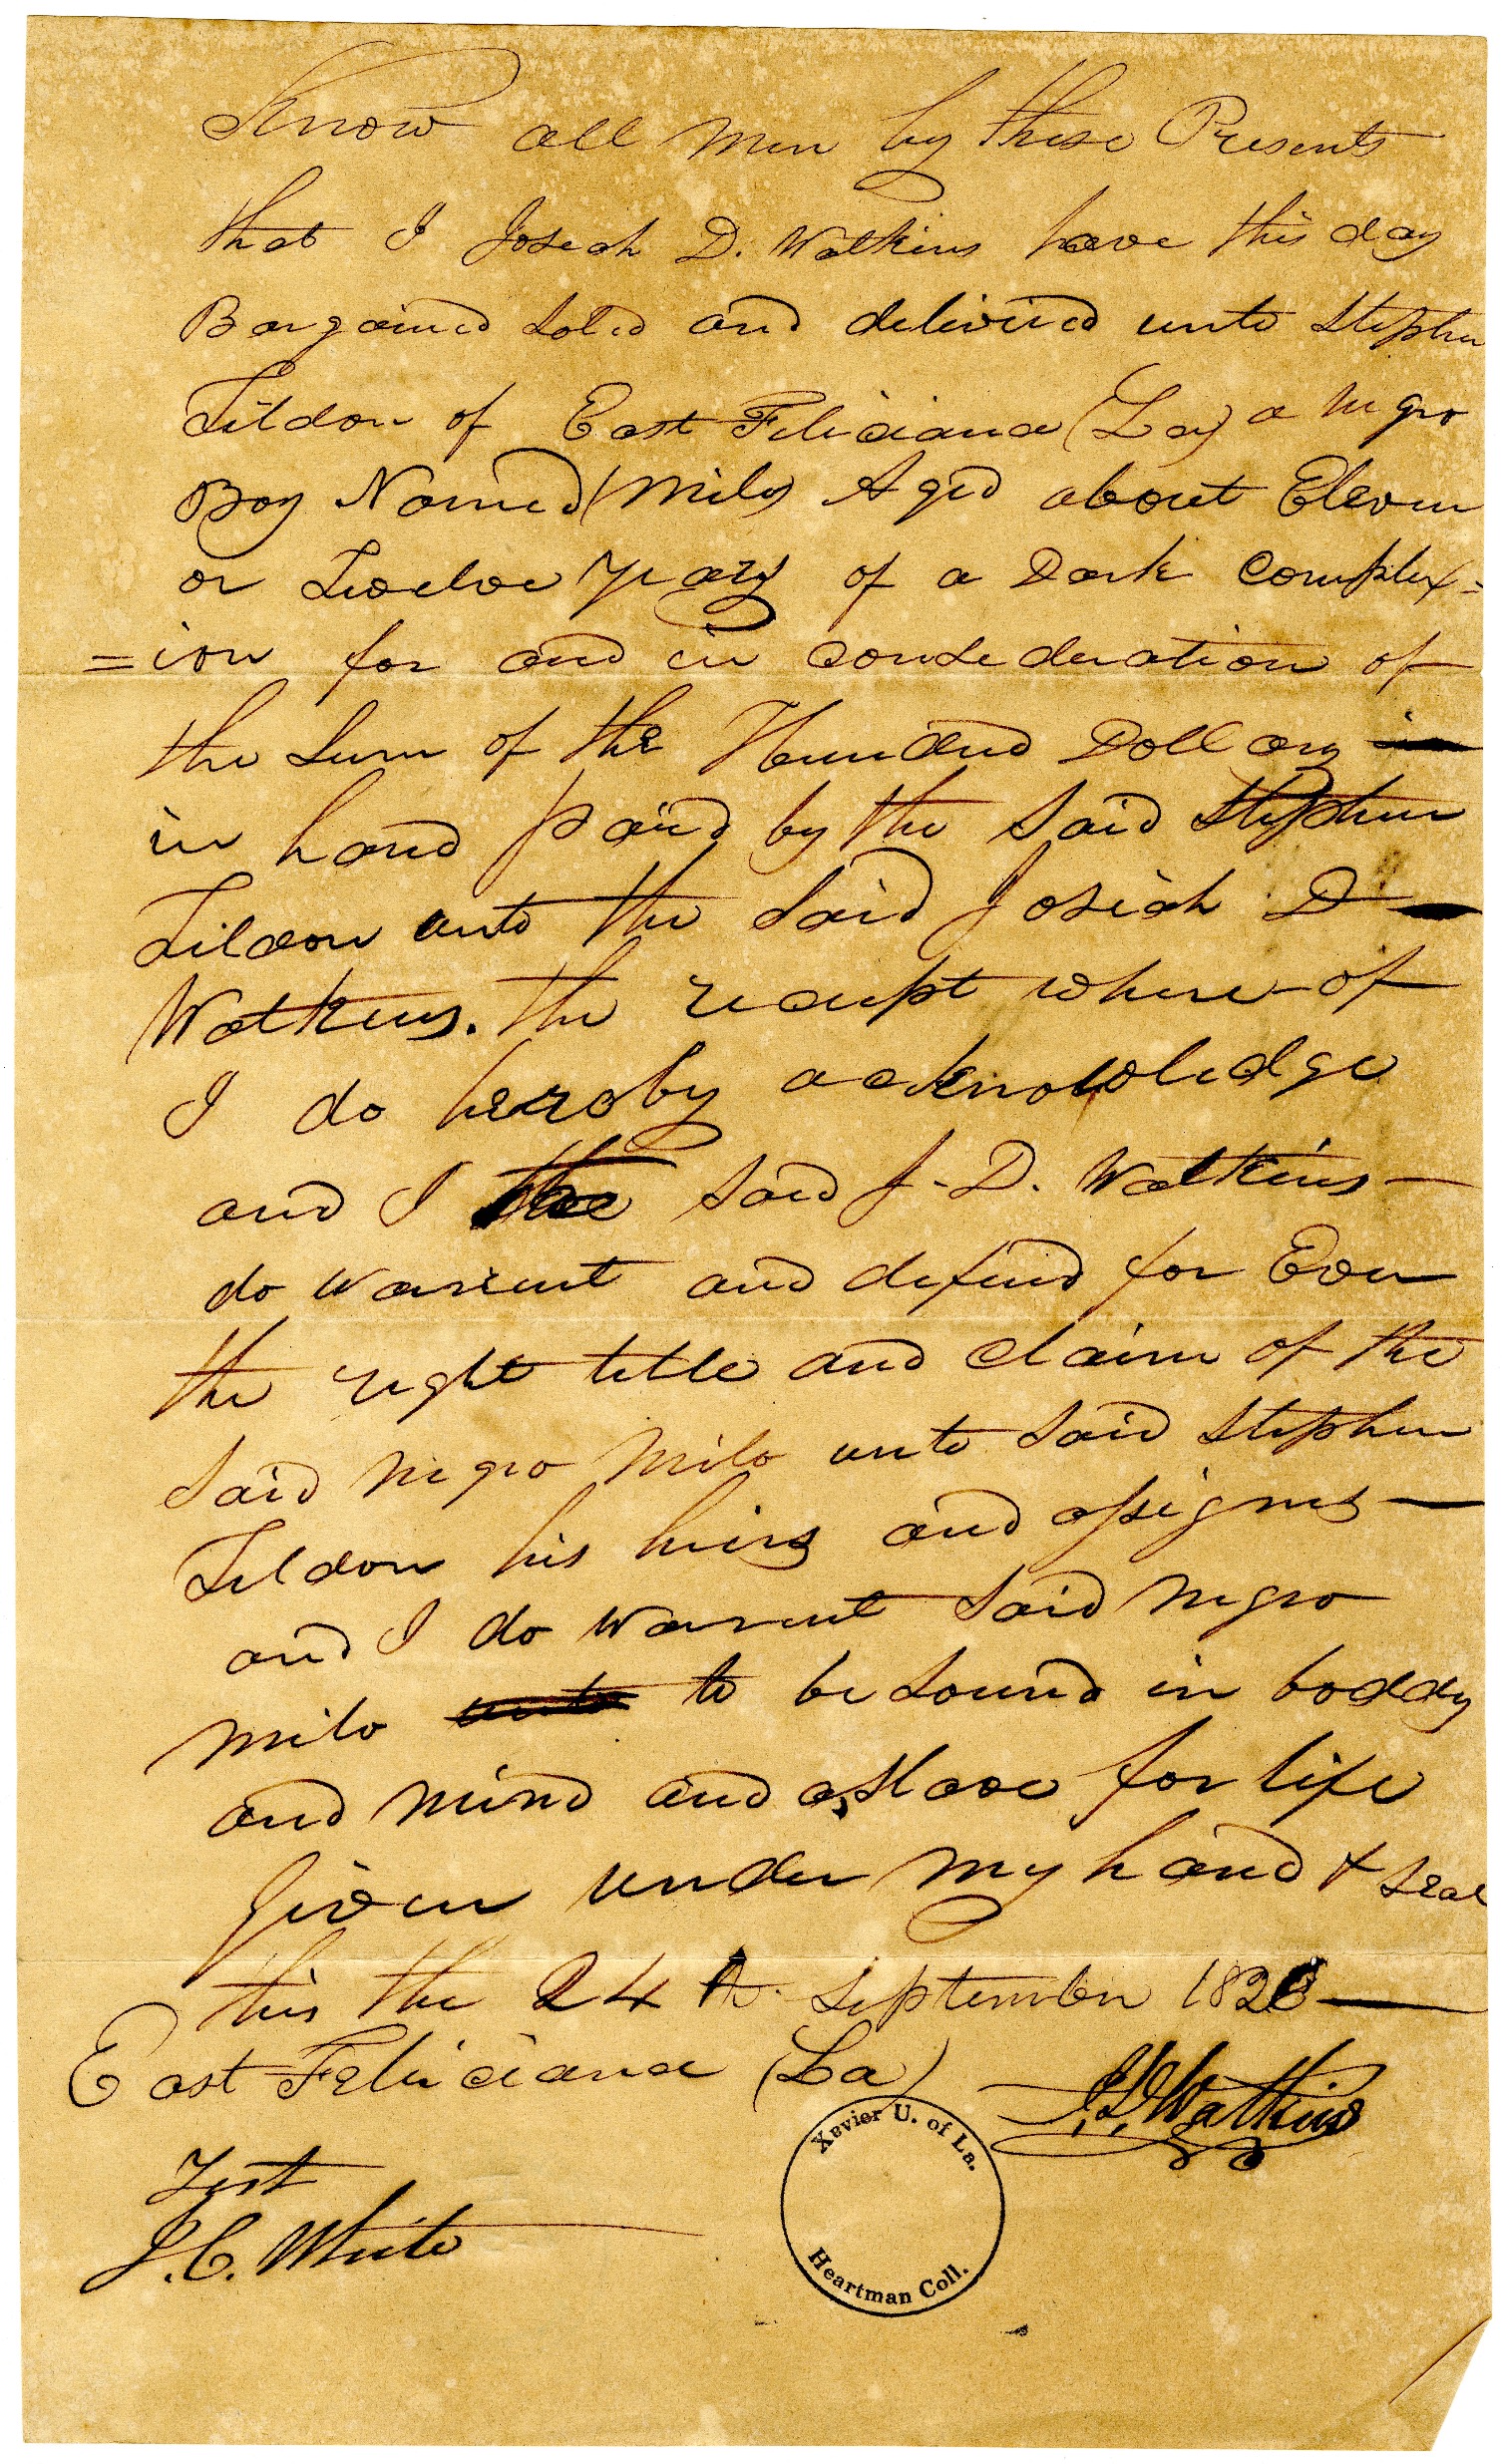 Know all men by these Presents
that I Joseah D. Watkins have this day
Bargained Sold and delivered unto Stephen
Tildon of East Feliciana (La) a negro
Boy Named Milo Aged about Eleven
or Twelve years of a Dark Complex=
=ion for and in consederation of
the Sum of the Hundred Dollars
in hand paid by the Said Stephen
Tildon unto the Said Josiah D
Watkins. the receipt where of
I do hereby acknowledge
and I the Said J. D. Watkins
do warrent and defend for Ever
the right title and claim of the
Said negro Milo unto Said Stephen
Tildon his heirs and assignes
and I do warrent Said negro
milo to be Sound in boddy
and mind and a Slave for life
given under my hand & Seal
this the 24th September
East Feliciana (La)
J. D. Watkins
Test
J. C. White
Xavier U. of La.
Heartman Coll.